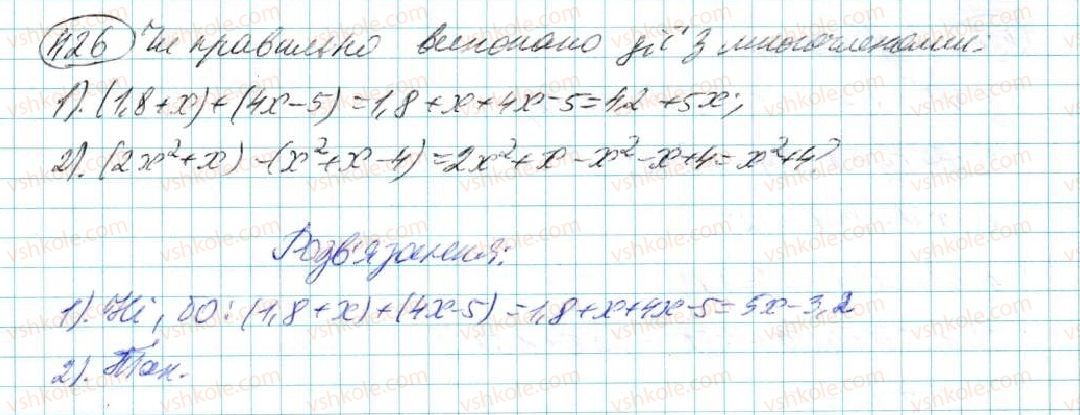 426 Чи правильно виконано дії з многочленами:
1). (1,8+x)+(4x-5)=1,8+x+4x-5=4,2+5x;
2). (2x²+x)-(x²+x-4)=2x²+x-x²-x+4=x²+4?
Розв'язання:
1). Ні, бо: (1,8+x)+(4x-5)=1,8+x+4x-5=5x-3,2
2). Так.